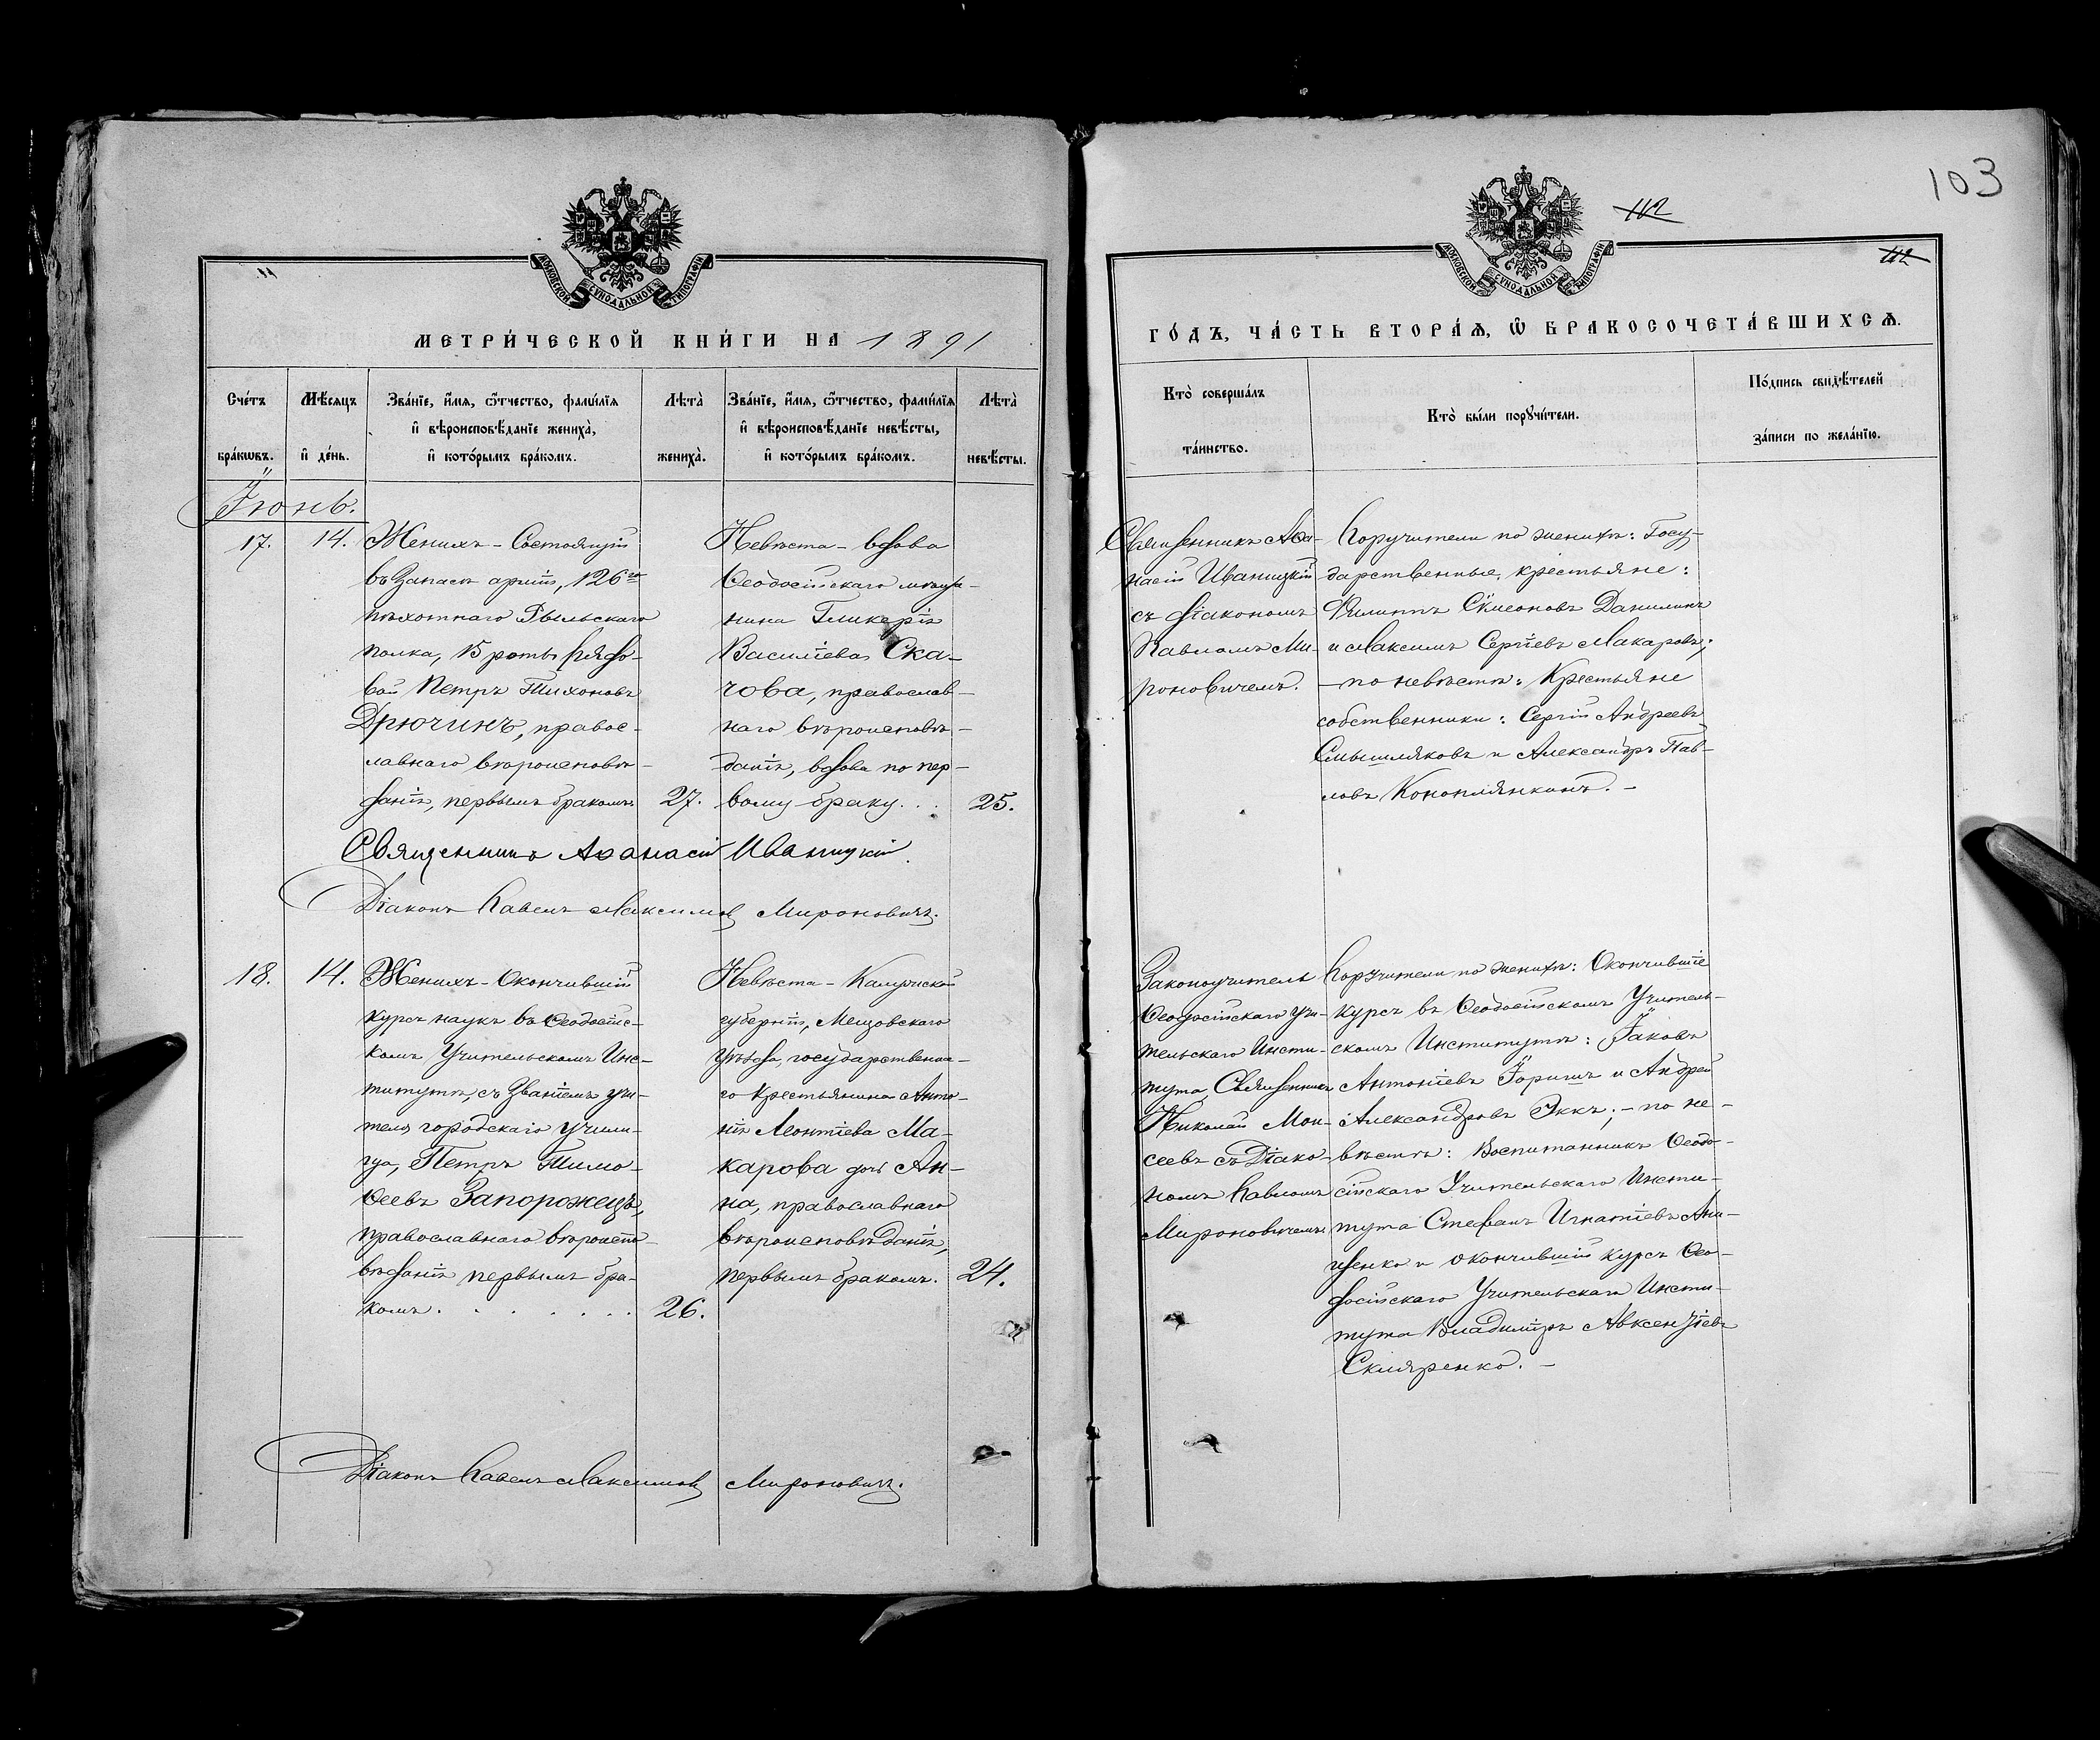 103
112
112
МОСКОВСКОЙ СѴНОДАЛЬНОЙ ТИПОГРАФІИ
МЕТРИ́ЧЕСКОЙ КНИ́ГИ НА 1891
Сче́тъ бра́кѡвъ.
Мѣ́сяцъ и҆ де́нь.
Зва́нїе, и҆́мѧ, ѻ҆́тчество, фами́лїѧ
и҆ вѣроисповѣ́данїе жениха̀,
и҆ кото́рымъ бра́комъ.
Лѣта̀ жениха̀.
Зва́нїе, и҆́мѧ, ѻ҆́тчество, фами́лїѧ
и҆ вѣроисповѣ́данїе невѣ́сты,
и҆ кото́рымъ бра́комъ.
Лѣта̀ невѣ́сты.
Іюнь.
17.
14.
Женихъ - Состоящій
въ Запасѣ арміи, 126го
пѣхотнаго Рыльскаго
полка, 15 роты рядо-
вой Петръ Тихоновъ
Дрючинъ, правос-
лавнаго вѣроисповѣ-
данія, первымъ бракомъ.
27.
Невѣста - вдова
Ѳеодосійскаго мѣща-
нина Гликерія
Василіева Ска-
чова, православ-
наго вѣроисповѣ-
данія, вдова по пер-
вому браку. . .
25.
Священникъ Аѳанасій Иваницкій.
Діаконъ Павелъ Максимов Мироновичъ.
18.
14.
Женихъ - Окончившій
курсъ наукъ въ Ѳеодосійс-
комъ Учительскомъ Инс-
титутѣ, съ Званіемъ учи-
теля городскаго училища,
Петръ Тимо-
ѳеевъ Запорожецъ,
православнаго вѣроиспо-
вѣданія первымъ бра-
комъ. . . . . . .
26.
Невѣста - Калужской
губерніи, Мещовскаго
уѣзда, государственна-
го крестьянина Анто-
нія Леонтіева Ма-
карова дочь Ан-
на, православнаго
вѣроисповѣданія,
первымъ бракомъ.
24.
Діаконъ Павелъ Максимов Мироновичъ.
МОСКОВСКОЙ СѴНОДАЛЬНОЙ ТИПОГРАФІИ
ГО́ДЪ, ЧА́СТЬ ВТОРА́Ѧ, Ѡ҆ БРАКОСОЧЕТА́ВШИХСѦ.
Кто̀ соверша́лъ
та́инство.
Кто̀ бы́ли порꙋчи́тели.
По́дпись свидѣ́телей
за́писи по жела́нїю.
Священникъ Аѳа-
насій Иваницкій
съ діакономъ
Павломъ Ми-
роновичемъ.
Поручители по женихѣ: Госу-
дарственные крестьяне:
Филиппъ Симеоновъ Данилинъ
и Максимъ Сергіевъ Макаровъ;
- по невѣстѣ: Крестьяне
собственники: Сергій Андреевъ
Смышляковъ и Александръ Пав-
ловъ Коноплянкинъ. -
Законоучитель
Ѳеодосійскаго Учи-
тельскаго Инсти-
тута, Священникъ
Николай Мои-
сеевъ съ Діако-
номъ Павломъ
Мироновичемъ
Поручители по женихѣ: Окончившіе
курсъ въ Ѳеодосійскомъ Учитель-
скомъ Институтѣ: Іаковъ
Антоніевъ Горишъ и Андрей
Александровъ Эккъ; - по не-
вѣстѣ: Воспитанникъ Ѳеодо-
сійскаго Учительскаго Инсти-
тута Стефанъ Игнатіевъ Они-
щенко и окончившій курсъ Ѳео-
досійскаго Учительскаго Инсти-
тута Владиміръ Авксентіевъ
Скляренко. -